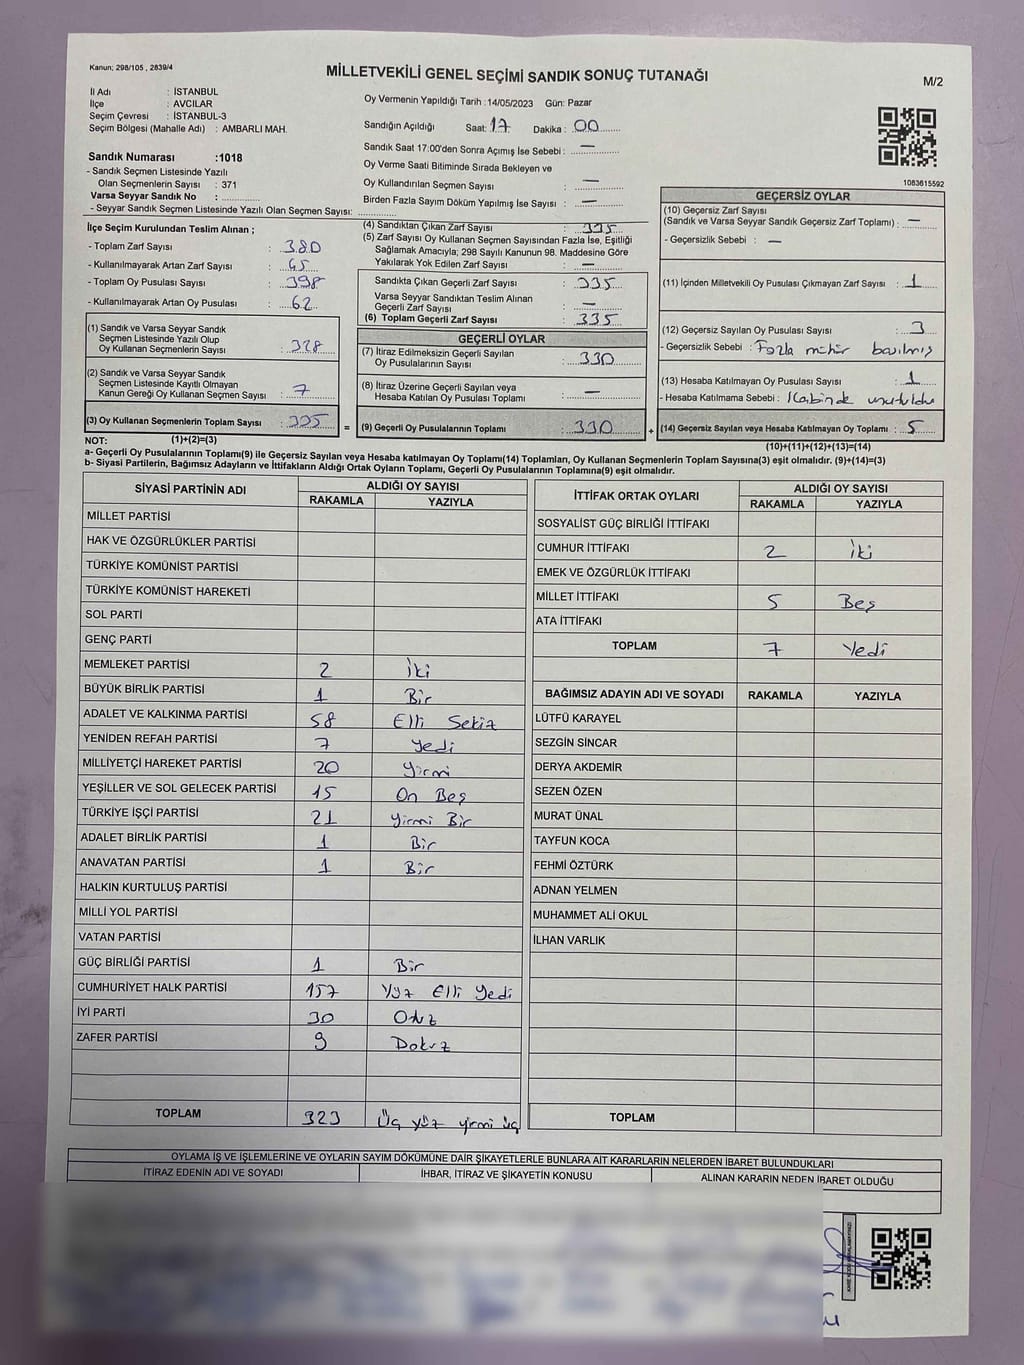 Kanun; 298/105 , 2839/4
MİLLETVEKİLİ GENEL SEÇİMİ SANDIK SONUÇ TUTANAĞI
M/2
İl Adı : İSTANBUL
İlçe : AVCILAR
Seçim Çevresi : İSTANBUL-3
Seçim Bölgesi (Mahalle Adı) : AMBARLI MAH.
Sandık Numarası :1018
- Sandık Seçmen Listesinde Yazılı
Olan Seçmenlerin Sayısı : 371
Varsa Seyyar Sandık No : ..............
- Seyyar Sandık Seçmen Listesinde Yazılı Olan Seçmen Sayısı: ..............
Oy Vermenin Yapıldığı Tarih :14/05/2023 Gün: Pazar
Sandığın Açıldığı Saat: 17 Dakika : 00
Sandık Saat 17:00'den Sonra Açımış İse Sebebi : —
Oy Verme Saati Bitiminde Sırada Bekleyen ve
Oy Kullandırılan Seçmen Sayısı : —
Birden Fazla Sayım Döküm Yapılmış İse Sayısı : —
1083615592
İlçe Seçim Kurulundan Teslim Alınan ;
- Toplam Zarf Sayısı : 380
- Kullanılmayarak Artan Zarf Sayısı : 45
- Toplam Oy Pusulası Sayısı : 398
- Kullanılmayarak Artan Oy Pusulası : 62
(1) Sandık ve Varsa Seyyar Sandık
Seçmen Listesinde Yazılı Olup
Oy Kullanan Seçmenlerin Sayısı : 328
(2) Sandık ve Varsa Seyyar Sandık
Seçmen Listesinde Kayıtlı Olmayan
Kanun Gereği Oy Kullanan Seçmen Sayısı : 7
(3) Oy Kullanan Seçmenlerin Toplam Sayısı : 335
(4) Sandıktan Çıkan Zarf Sayısı : 335
(5) Zarf Sayısı Oy Kullanan Seçmen Sayısından Fazla İse, Eşitliği
Sağlamak Amacıyla; 298 Sayılı Kanunun 98. Maddesine Göre
Yakılarak Yok Edilen Zarf Sayısı : —
Sandıkta Çıkan Geçerli Zarf Sayısı : 335
Varsa Seyyar Sandıktan Teslim Alınan
Geçerli Zarf Sayısı : —
(6) Toplam Geçerli Zarf Sayısı : 335
GEÇERLİ OYLAR
(7) İtiraz Edilmeksizin Geçerli Sayılan
Oy Pusulalarının Sayısı : 330
(8) İtiraz Üzerine Geçerli Sayılan veya
Hesaba Katılan Oy Pusulaları Toplamı : —
= (9) Geçerli Oy Pusulalarının Toplamı : 330 +
GEÇERSİZ OYLAR
(10) Geçersiz Zarf Sayısı
(Sandık ve Varsa Seyyar Sandık Geçersiz Zarf Toplamı) : —
- Geçersizlik Sebebi : —
(11) İçinden Milletvekili Oy Pusulası Çıkmayan Zarf Sayısı : 1
(12) Geçersiz Sayılan Oy Pusulası Sayısı : 3
- Geçersizlik Sebebi : Fazla mühür basılmış
(13) Hesaba Katılmayan Oy Pusulası Sayısı : 1
- Hesaba Katılmama Sebebi : Kabinde unutuldu
(14) Geçersiz Sayılan veya Hesaba Katılmayan Oy Toplamı : 5
NOT: (1)+(2)=(3)
(10)+(11)+(12)+(13)=(14)
a- Geçerli Oy Pusulaların Toplamı(9) ile Geçersiz Sayılan veya Hesaba katılmayan Oy Toplamı(14) Toplamları, Oy Kullanan Seçmenlerin Toplam Sayısına(3) eşit olmalıdır. (9)+(14)=(3)
b- Siyasi Partilerin, Bağımsız Adayların ve İttifakların Aldığı Ortak Oyların Toplamı, Geçerli Oy Pusulalarının Toplamına(9) eşit olmalıdır.
SİYASİ PARTİNİN ADI ALDIĞI OY SAYISI
RAKAMLA YAZIYLA
MİLLET PARTİSİ
HAK VE ÖZGÜRLÜKLER PARTİSİ
TÜRKİYE KOMÜNİST PARTİSİ
TÜRKİYE KOMÜNİST HAREKETİ
SOL PARTİ
GENÇ PARTİ
MEMLEKET PARTİSİ 2 İki
BÜYÜK BİRLİK PARTİSİ 1 Bir
ADALET VE KALKINMA PARTİSİ 58 Elli Sekiz
YENİDEN REFAH PARTİSİ 7 Yedi
MİLLİYETÇİ HAREKET PARTİSİ 20 Yirmi
YEŞİLLER VE SOL GELECEK PARTİSİ 15 On Beş
TÜRKİYE İŞÇİ PARTİSİ 21 Yirmi Bir
ADALET BİRLİK PARTİSİ 1 Bir
ANAVATAN PARTİSİ 1 Bir
HALKIN KURTULUŞ PARTİSİ
MİLLİ YOL PARTİSİ
VATAN PARTİSİ
GÜÇ BİRLİĞİ PARTİSİ 1 Bir
CUMHURİYET HALK PARTİSİ 157 Yüz Elli Yedi
İYİ PARTİ 30 Otuz
ZAFER PARTİSİ 9 Dokuz
TOPLAM 323 Üç yüz yirmi üç
İTTİFAK ORTAK OYLARI ALDIĞI OY SAYISI
RAKAMLA YAZIYLA
SOSYALİST GÜÇ BİRLİĞİ İTTİFAKI
CUMHUR İTTİFAKI 2 İki
EMEK VE ÖZGÜRLÜK İTTİFAKI
MİLLET İTTİFAKI 5 Beş
ATA İTTİFAKI
TOPLAM 7 Yedi
BAĞIMSIZ ADAYIN ADI VE SOYADI RAKAMLA YAZIYLA
LÜTFÜ KARAYEL
SEZGİN SİNCAR
DERYA AKDEMİR
SEZEN ÖZEN
MURAT ÜNAL
TAYFUN KOCA
FEHMİ ÖZTÜRK
ADNAN YELMEN
MUHAMMET ALİ OKUL
İLHAN VARLIK
TOPLAM
OYLAMA İŞ VE İŞLEMLERİNE VE OYLARIN SAYIM DÖKÜMÜNE DAİR ŞİKAYETLERLE BUNLARA AİT KARARLARIN NELERDEN İBARET BULUNDUKLARI
İTİRAZ EDENİN ADI VE SOYADI İHBAR, İTİRAZ VE ŞİKAYETİN KONUSU ALINAN KARARIN NEDEN İBARET OLDUĞU